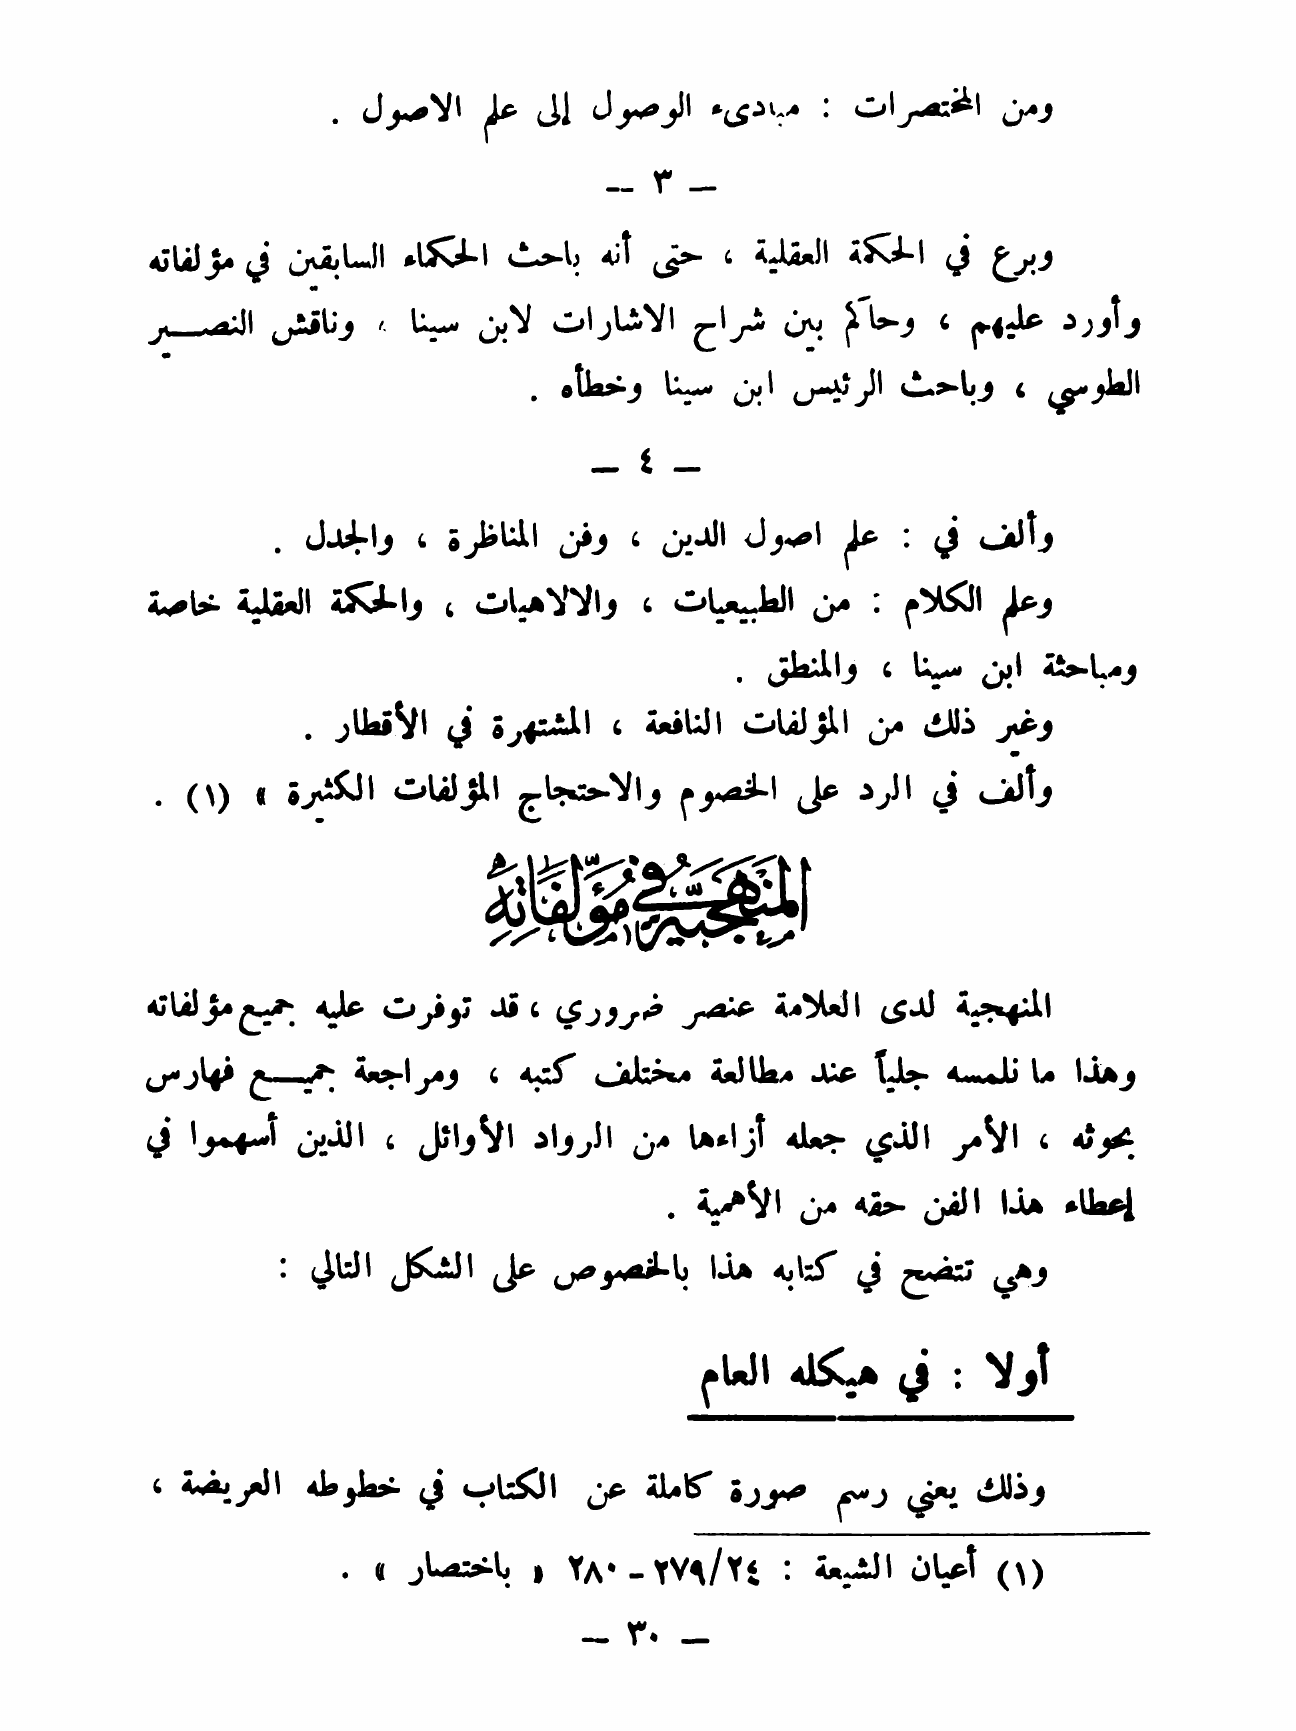 ومن المختصرات : مبادىء الوصول إلى علم الاصول .
— ٣ —
وبرع في الحكمة العقلية ، حتى أنه باحث الحكماء السابقين في مؤلفاته
وأورد عليهم ، وحاكم بين شراح الاشارات لابن سينا ، وناقش النصير
الطوسي ، وباحث الرئيس ابن سينا وخطأه .
— ٤ —
وألف في : علم اصول الدين ، وفن المناظرة ، والجدل .
وعلم الكلام : من الطبيعيات ، والالاهيات ، والحكمة العقلية خاصة
ومباحثة ابن سينا ، والمنطق .
وغير ذلك من المؤلفات النافعة ، المشتهرة في الأقطار .
وألف في الرد على الخصوم والاحتجاج المؤلفات الكثيرة » (١) .
المنهجية في مؤلفاته
المنهجية لدى العلامة عنصر ضروري ، قد توفرت عليه جميع مؤلفاته
وهذا ما نلمسه جلياً عند مطالعة مختلف كتبه ، ومراجعة جميع فهارس
بحوثه ، الأمر الذي جعله أزاءها من الرواد الأوائل ، الذين أسهموا في
إعطاء هذا الفن حقه من الأهمية .
وهي تتضح في كتابه هذا بالخصوص على الشكل التالي :
أولا : في هيكله العام
وذلك يعني رسم صورة كاملة عن الكتاب في خطوطه العريضة ،
(١) أعيان الشيعة : ٢٤/٢٧٩ - ٢٨٠ « باختصار » .
— ٣٠ —